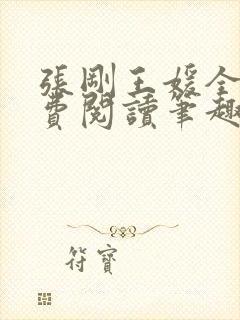 張剛王媛全
費閱讀筆趣
符寶